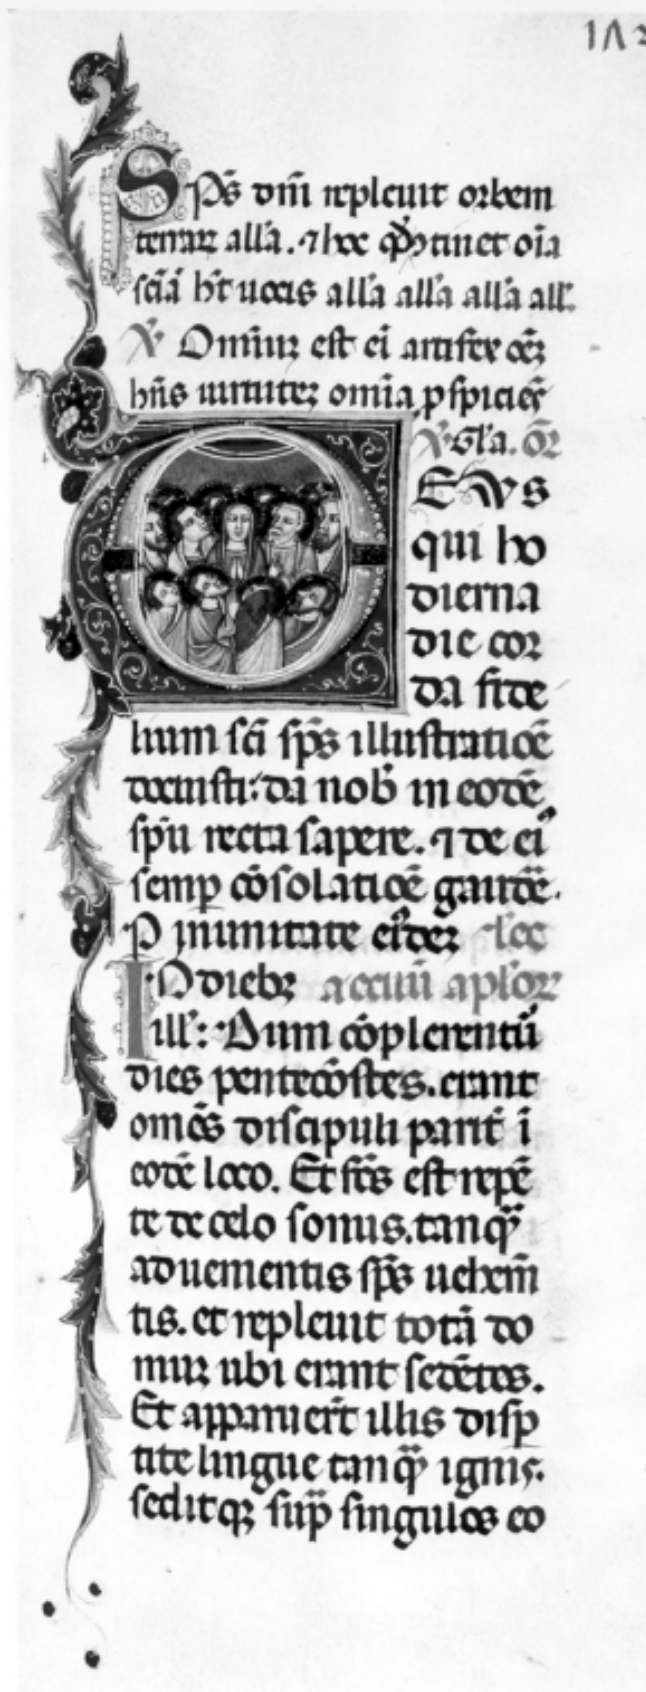 182
Sp̄s dn̄i repleuit orbem
terrar̄ all'a. ⁊ hoc qd̓ ↄtinet oīa
sciāꝫ h̄t uocis all'a all'a all'a all'.
V̄ Omniuꝫ est eī artifex oēꝫ
hn̄s uirtuteꝫ omīa ꝓspiciēs
V̄ Gl'a. Or̄
DEVS
qui ho
dierna
die cor
da fide
lium sc̄i sp̄s illustratiōe
docuisti: da nob̄ in eodē
sp̄u recta sapere. ⁊ de ei'
semp̲ cōsolatiōe gaudē.
P in unitate ei'deꝫ l'ec
IN diebꝫ actuū apl'oꝝ
ill': Dum cōplerentur̄
dies pentecōstes. erant
omēs discipuli parit̄ ī
eodē loco. Et fc̄s est repē
te de celo sonus. tanqꝫ̄
aduenientis sp̄s uehem̄
tis. et repleuit totā do
muꝫ ubi erant sedētes.
Et apparuer̄t illis disp̲
tite lingue tanqꝫ̄ ignis.
seditqꝫ sup̄ singulos eo